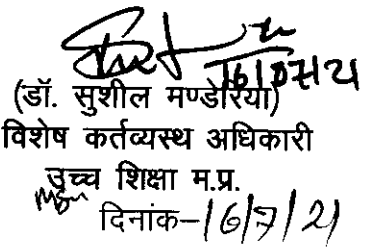 16/07/21
(डॉ. सुशील मण्डेरिया)
विशेष कर्तव्यस्थ अधिकारी
उच्च शिक्षा म.प्र.
दिनांक–16/7/21